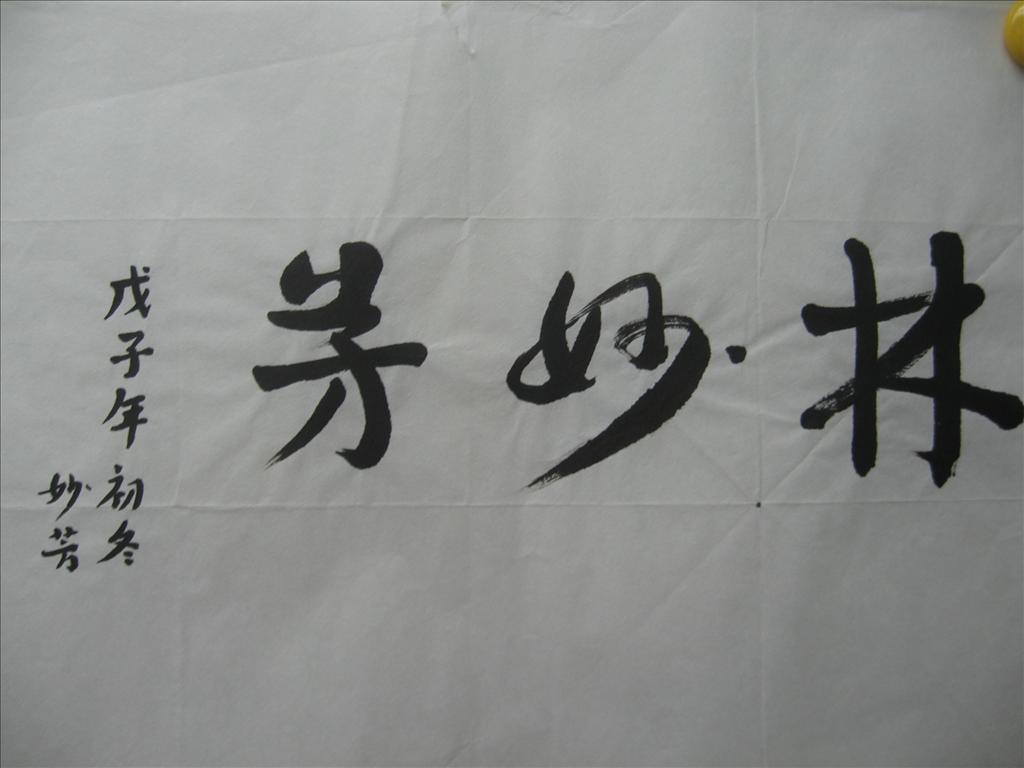 林妙芳
戊子年初冬
妙芳